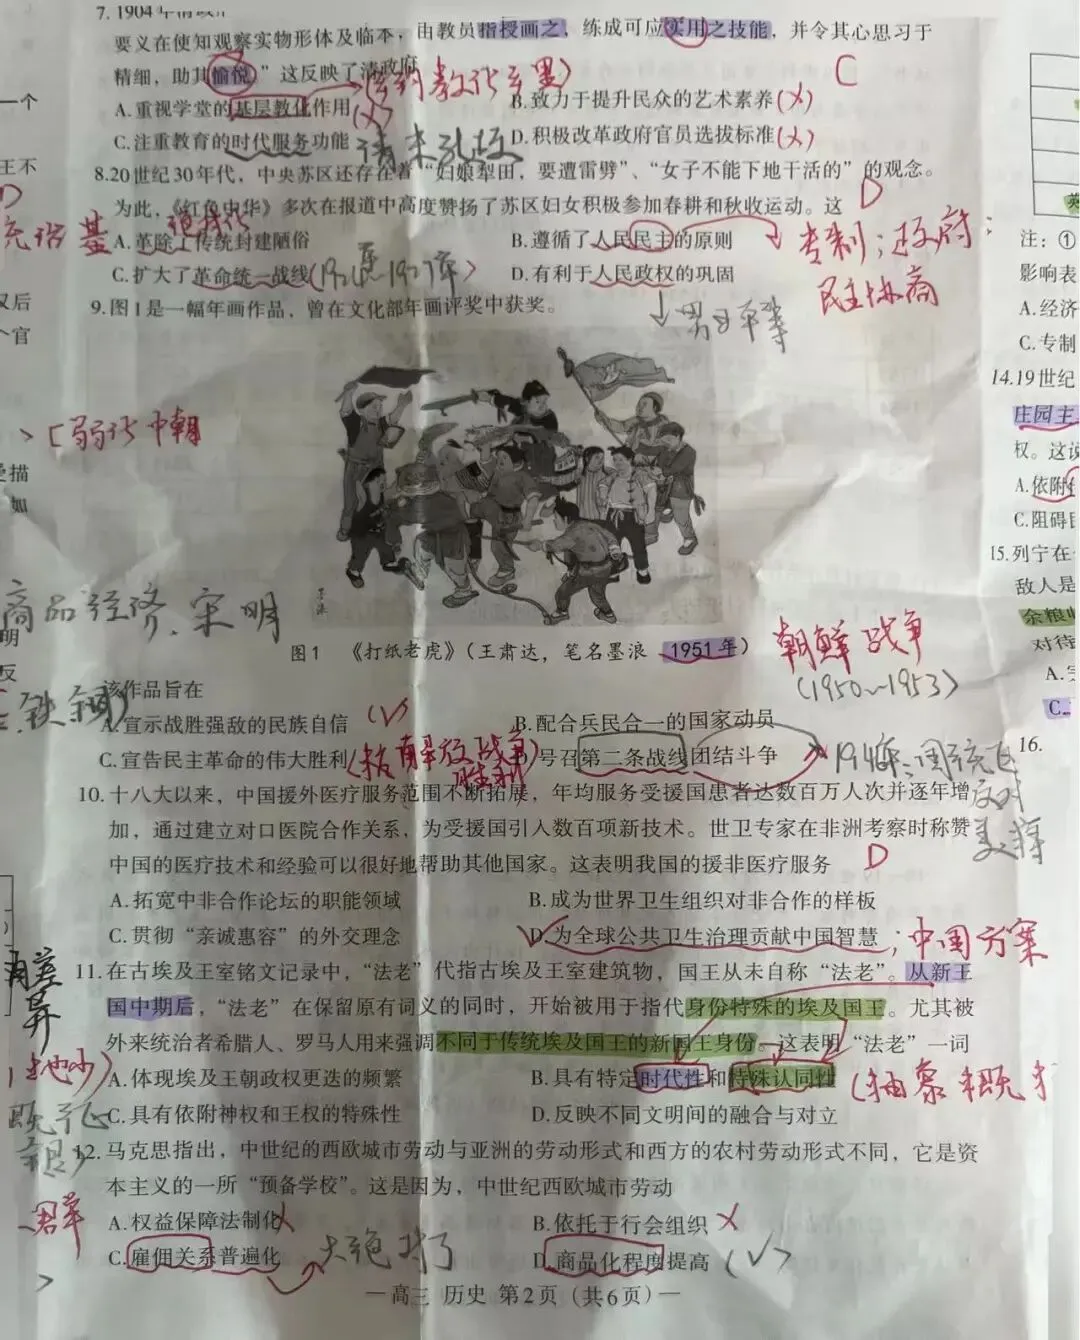 7. 1904年清政
要义在使知观察实物形体及临本，由教员指授画之，练成可应实用之技能，并令其心思习于
精细，助其愉悦。”这反映了清政府
A.重视学堂的基层教化作用
(×)
B.致力于提升民众的艺术素养(×)
C
C.注重教育的时代服务功能
D.积极改革政府官员选拔标准(×)
8.20世纪30年代，中央苏区还存在着“妇娘犁田，要遭雷劈”、“女子不能下地干活的”的观念。
为此，《红色中华》多次在报道中高度赞扬了苏区妇女积极参加春耕和秋收运动。这
D
A.革除了传统封建陋俗
B.遵循了人民民主的原则
专制；政府；
民主协商
C.扩大了革命统一战线
D.有利于人民政权的巩固
男女平等
9.图1是一幅年画作品，曾在文化部年画评奖中获奖。
弱化中朝
商品经济、宋明
墨浪
图1 《打纸老虎》（王肃达，笔名墨浪 1951年）
朝鲜战争
(1950~1953)
该作品旨在
A.宣示战胜强敌的民族自信
(√)
B.配合兵民合一的国家动员
C.宣告民主革命的伟大胜利
解放战争
胜利
号召第二条战线团结斗争
10.十八大以来，中国援外医疗服务范围不断拓展，年均服务受援国患者达数百万人次并逐年增
加，通过建立对口医院合作关系，为受援国引入数百项新技术。世卫专家在非洲考察时称赞
中国的医疗技术和经验可以很好地帮助其他国家。这表明我国的援非医疗服务
D
A.拓宽中非合作论坛的职能领域
B.成为世界卫生组织对非合作的样板
C.贯彻“亲诚惠容”的外交理念
D.为全球公共卫生治理贡献中国智慧
；中国方案
11.在古埃及王室铭文记录中，“法老”代指古埃及王室建筑物，国王从未自称“法老”。从新王
国中期后，“法老”在保留原有词义的同时，开始被用于指代身份特殊的埃及国王。尤其被
外来统治者希腊人、罗马人用来强调不同于传统埃及国王的新国王身份。这表明“法老”一词
A.体现埃及王朝政权更迭的频繁
B.具有特定时代性和特殊认同性
C.具有依附神权和王权的特殊性
D.反映不同文明间的融合与对立
12.马克思指出，中世纪的西欧城市劳动与亚洲的劳动形式和西方的农村劳动形式不同，它是资
本主义的一所“预备学校”。这是因为，中世纪西欧城市劳动
A.权益保障法制化
×
B.依托于行会组织
×
C.雇佣关系普遍化
D.商品化程度提高
(√)
—高三 历史 第2页（共6页）—
一个
王不
后
个官
描
如
明
反
注：①
影响表
A.经济
C.专制
14.19世纪
庄园主
权。这说
A.依附
C.阻碍
15.列宁在
敌人是
余粮收
对待
A.
C.
16.